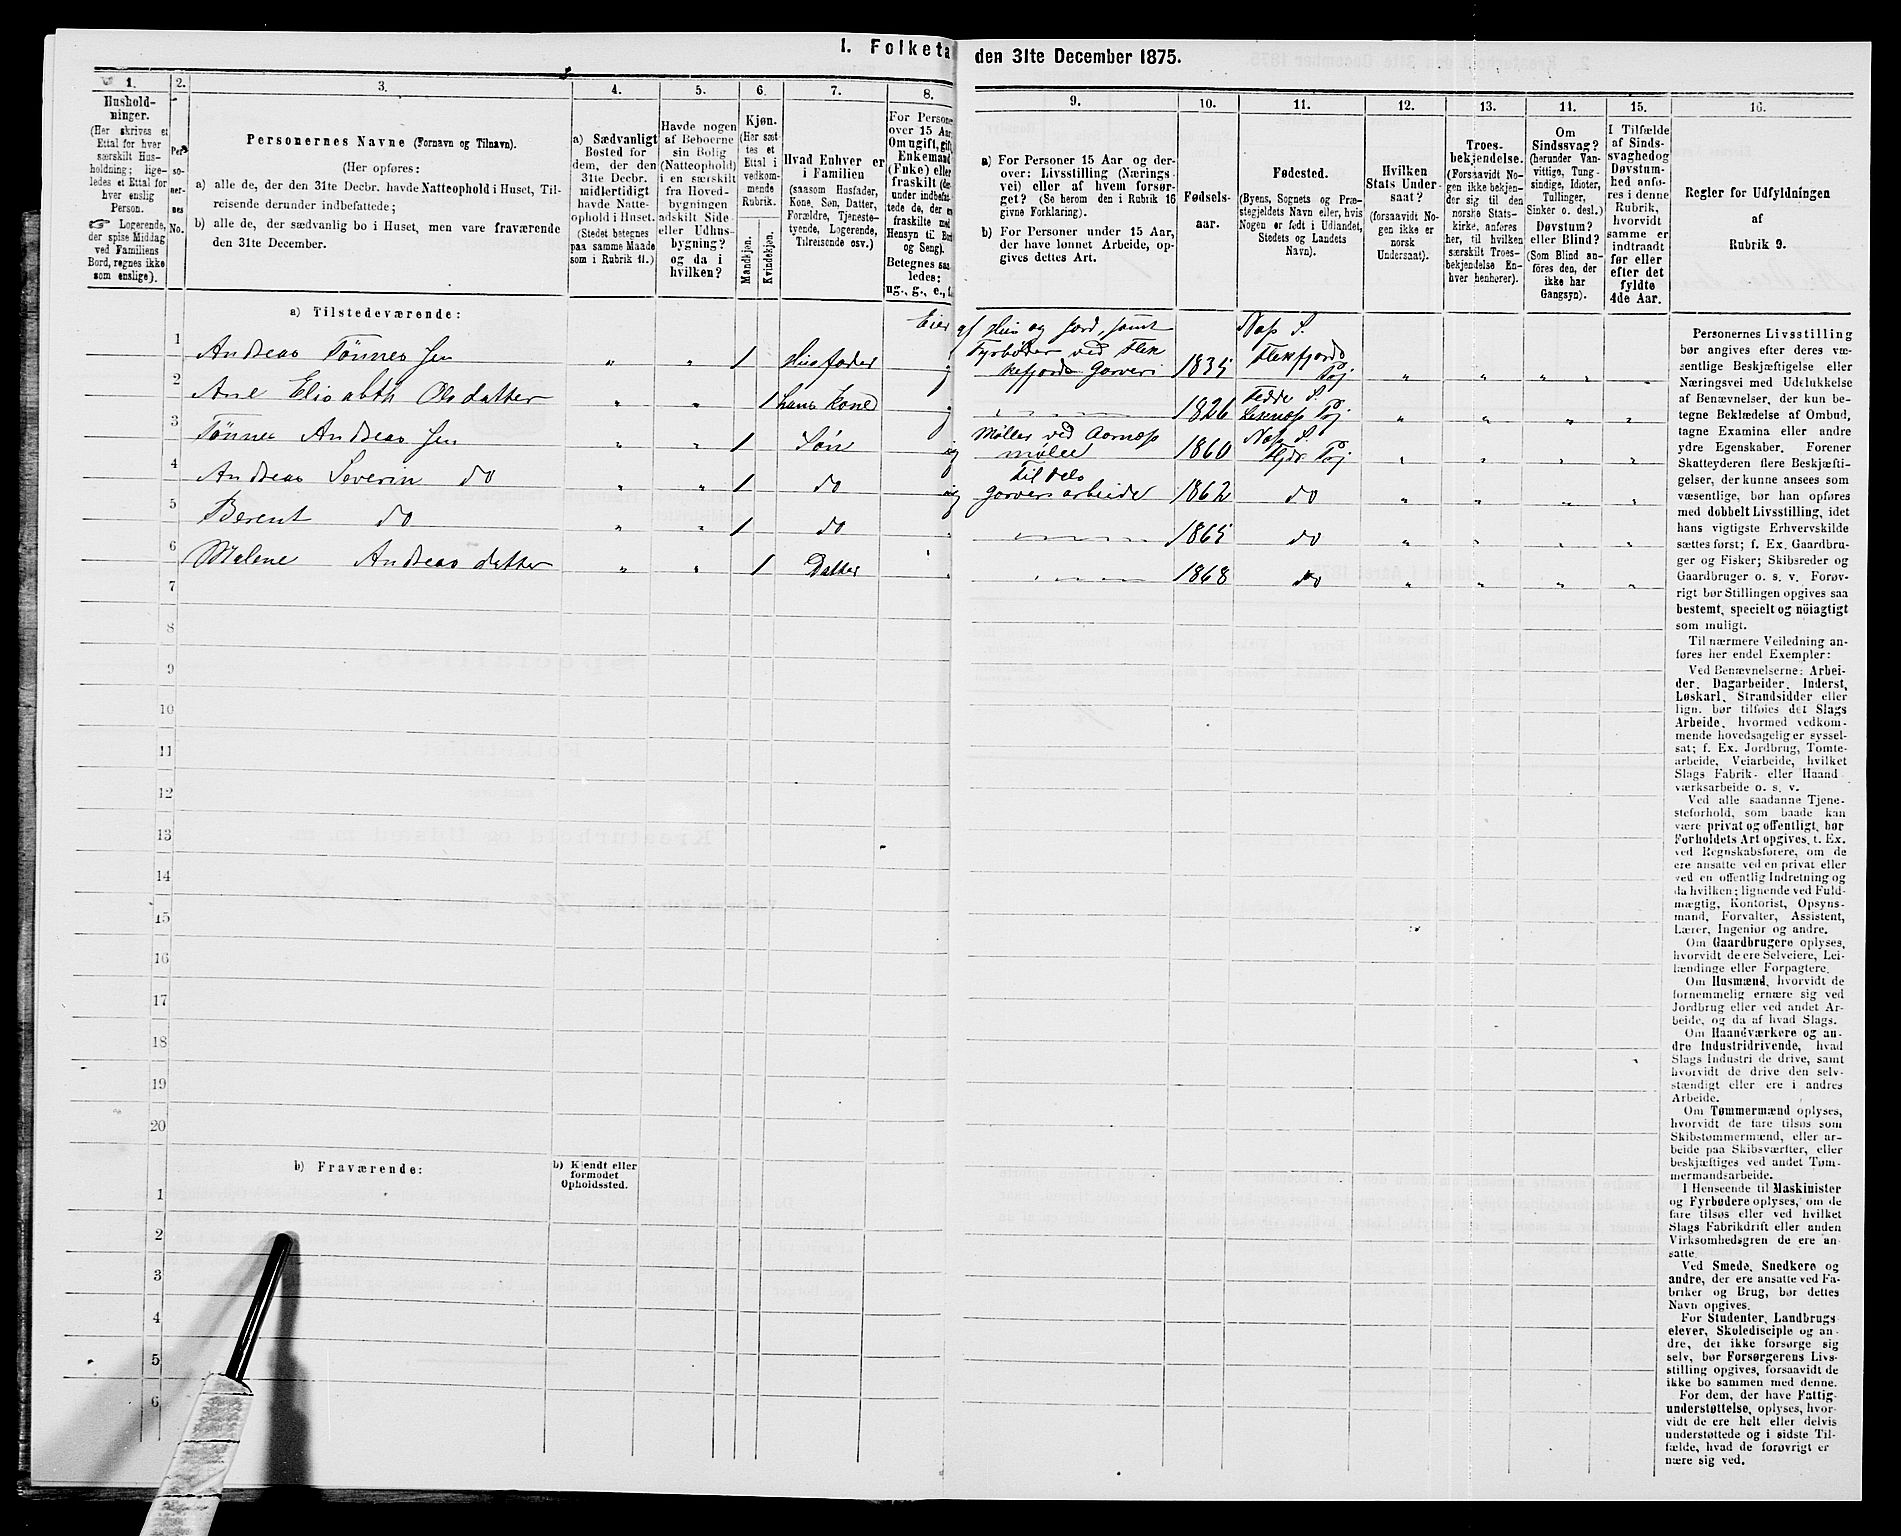 I. Folketa den 31te December 1875.
1.
Hushold-
ninger.
(Her skrives et
Ettal for hver
særskilt Hus-
holdning; lige-
ledes et Ettal for
hver enslig
Person.
☞ Logerende,
der spise Middag
ved Familiens
Bord, regnes ikke
som enslige).
2.
Per-
so-
ner-
nes
No.
3.
Personernes Navne (Fornavn og Tilnavn).
(Her opføres:
a) alle de, der den 31te Decbr. havde Natteophold i Huset, Til-
reisende derunder indbefattede;
b) alle de, der sædvanlig bo i Huset, men vare fraværende
den 31te December.
4.
a) Sædvanligt
Bosted for
dem, der den
31te Decbr.
midlertidigt
havde Natte-
ophold i Huset.
(Stedet betegnes
paa samme Maade
som i Rubrik 11.)
5.
Havde nogen
af Beboerne
sin Bolig
(Natteophold)
i en særskilt
fra Hoved-
bygningen
adskilt Side-
eller Udhus-
bygning?
og da i
hvilken?
6.
Kjøn.
(Her sæt-
tes et
Ettal i
vedkom-
mende
Rubrik.
Mandkjøn.
Kvindekjøn.
7.
Hvad Enhver er
i Familien
(saasom Husfader,
Kone, Søn, Datter,
Forældre, Tjeneste-
tyende, Logerende,
Tilreisende osv.)
8.
For Persone
over 15 Aar
Om ugift, gift,
Enkemand
(Enke) eller
fraskilt (der-
under indbefat-
tede de, der er
fraskilte med
Hensyn til Bord
og Seng).
Betegnes saa-
ledes:
ug., g., e., f.
9.
a) For Personer 15 Aar og der-
over: Livsstilling (Nærings-
vei) eller af hvem forsør-
get? (Se herom den i Rubrik 16
givne Forklaring).
b) For Personer under 15 Aar,
der have lønnet Arbeide, op-
gives dettes Art.
10.
Fødsels-
aar.
11.
Fødested.
(Byens, Sognets og Præ-
stegjeldets Navn eller, hvis
Nogen er født i Udlandet,
Stedets og Landets
Navn).
12.
Hvilken
Stats Under-
saat?
(forsaavidt No-
gen ikke er
norsk
Undersaat).
13.
Troes-
bekjendelse.
(Forsaavidt No-
gen ikke bekjen-
der sig til den
norske Stats-
kirke, anføres
her, til hvilken
særskilt Troes-
bekjendelse En-
hver henhører).
14.
Om
Sindssvag?
(herunder Van-
vittige, Tung-
sindige, Idioter,
Tullinger,
Sinker o. desl.)
Døvstum?
eller Blind?
(Som Blind an-
føres den, der
ikke har
Gangsyn).
15.
I Tilfælde
af Sinds-
svaghed og
Døvstum-
hed anfø-
res i denne
Rubrik,
hvorvidt
samme er
indtraadt
før eller
efter det
fyldte
4de Aar.
16.
Regler for Udfyldningen
af
Rubrik 9.
a) Tilstedeværende:
Eier af Hus og Jord, samt Næs S.
1 Andreas Tønnes sen " " 1 Husfader Fyrbøder ved Flek kefjords Garveri 1835 Flekkfjords Pgj " " " " "
2 Ane Elisabth Ols datter " " 1 hans kone 1826 Fedde S. Pgj " " " "
3 Tønnes Andreas sen " " 1 Søn ug Møller ved Aarnæs mølle 1860 Næs S. Fljds Pgj " " " "
4 Andreas Severin do " " 1 do ug Til dels garveri arbeide 1862 do " " " "
5 Berent do " " 1 do 1865 do " " " "
6 Malene Andreas datter " " 1 Datter 1868 do " " " "
7
8
9
10
11
12
13
14
15
16
17
18
19
20
b) Fraværende:
b) Kjendt eller
formodet
Opholdssted.
1
2
3
4
5
6
Personernes Livsstilling
bør angives efter deres væ-
sentlige Beskjæftigelse eller
Næringsvei med Udelukkelse
af Benævnelser, der kun be-
tegne Beklædelse af Ombud,
tagne Examina eller andre
ydre Egenskaber. Forener
Skatteyderen flere Beskjæfti-
gelser, der kunne ansees som
væsentlige, bør han opføres
med dobbelt Livsstilling, idet
hans vigtigste Erhvervskilde
sættes først; f. Ex. Gaardbru-
ger og Fisker; Skibsreder og
Gaardbruger o. s. v. Forøv-
rigt bør Stillingen opgives saa
bestemt, specielt og nöiagtigt
som muligt.
Til nærmere Veiledning an-
føres her endel Exempler:
Ved Benævnelserne: Arbei-
der, Dagarbeider, Inderst,
Løskarl, Strandsidder eller
lign. bør tilføies det Slags
Arbeide, hvormed vedkom-
mende hovedsagelig er syssel-
sat; f. Ex. Jordbrug, Tomte-
arbeide, Veiarbeide, hvilket
Slags Fabrik- eller Haand
værksarbeide o. s. v.
Ved alle saadanne Tjene-
steforhold, som baade kan
være privat og offentligt, bør
Forholdets Art opgives, f. Ex.
ved Regnskabsførere, om de
ere ansatte ved en privat eller
ved en offentlig Indretning og
da hvilken; lignende ved Fuld-
mægtig, Kontorist, Opsyns-
mand, Forvalter, Assistent,
Lærer, Ingeniør og andre.
Om Gaardbrugere oplyses,
hvorvidt de ere Selveiere, Lei-
lændinge eller Forpagtere.
Om Husmænd, hvorvidt de
fornemmelig ernære sig ved
Jordbrug eller ved andet Ar-
beide, og da af hvad Slags.
Om Haandværkere og an-
dre Industridrivende, hvad
Slags Industri de drive, samt
hvorvidt de drive den selv-
stændigt eller ere i andres
Arbeide.
Om Tømmermænd oplyses,
hvorvidt de fare tilsøs som
Skibstømmermænd, eller ar-
beide paa Skibsværfter, eller
beskjæftiges ved andet Tøm-
mermandsarbeide.
I Henseende til Maskinister
og Fyrbødere oplyses, om de
fare tilsøs eller ved hvilket
Slags Fabrikdrift eller anden
Virksomhedsgren de ere an-
satte.
Ved Smede, Snedkere og
andre, der ere ansatte ved Fa-
briker og Brug, bør dettes
Navn opgives.
For Studenter, Landbrugs-
elever, Skoledisciple og an-
dre, det ikke forsørge sig
selv, bør Forsørgerens Livs-
stilling opgives, forsaavidt de
ikke bo sammen med denne.
For dem, der have Fattig-
understøttelse, oplyses, hvor-
vidt de ere helt eller delvis
understøttede og i sidste Til-
fælde, hvad de forøvrigt er
nære sig ved.